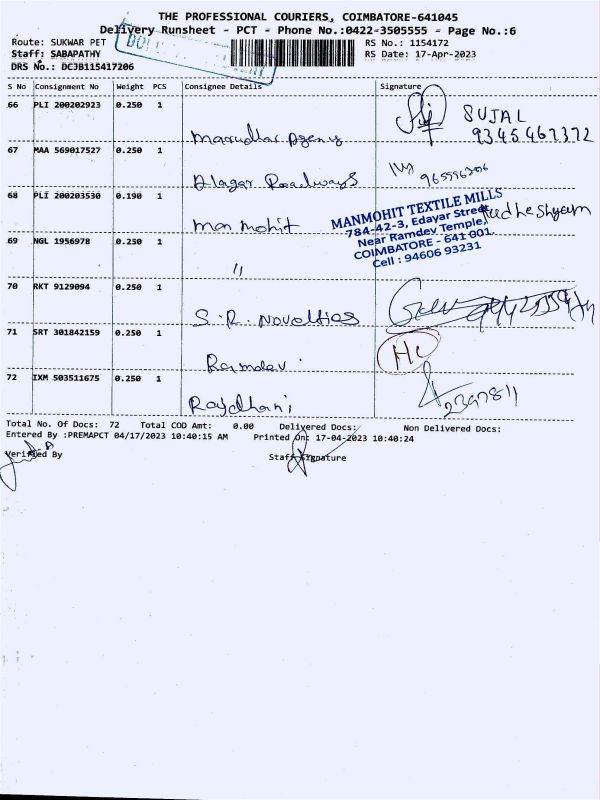 THE PROFESSIONAL COURIERS, COIMBATORE-641045
Delivery Runsheet - PCT - Phone No.:0422-3505555 - Page No.:6
Route: SUKWAR PET
RS No.: 1154172
Staff: SABAPATHY
RS Date: 17-Apr-2023
DRS No.: DCJB115417206
S No Consignment No Weight PCS Consignee Details Signature
66 PLI 200202923 0.250 1
SUJAL
9345467372
67 MAA 569017527 0.250 1
Alagar Roadways
68 PLI 200203530 0.190 1
Man mohit
MANMOHIT TEXTILE MILLS
784-42-3, Edayar Street,
Near Ramdev Temple,
COIMBATORE - 641 001.
Cell : 94606 93231
69 NGL 1956978 0.250 1
"
70 RKT 9129094 0.250 1
S.R. Novelties
71 SRT 301842159 0.250 1
Ramdev
72 IXM 503511675 0.250 1
Rajdhani
Total No. Of Docs: 72 Total COD Amt: 0.00 Delivered Docs: Non Delivered Docs:
Entered By :PREMAPCT 04/17/2023 10:40:15 AM Printed On: 17-04-2023 10:40:24
Verified By Staff Signature